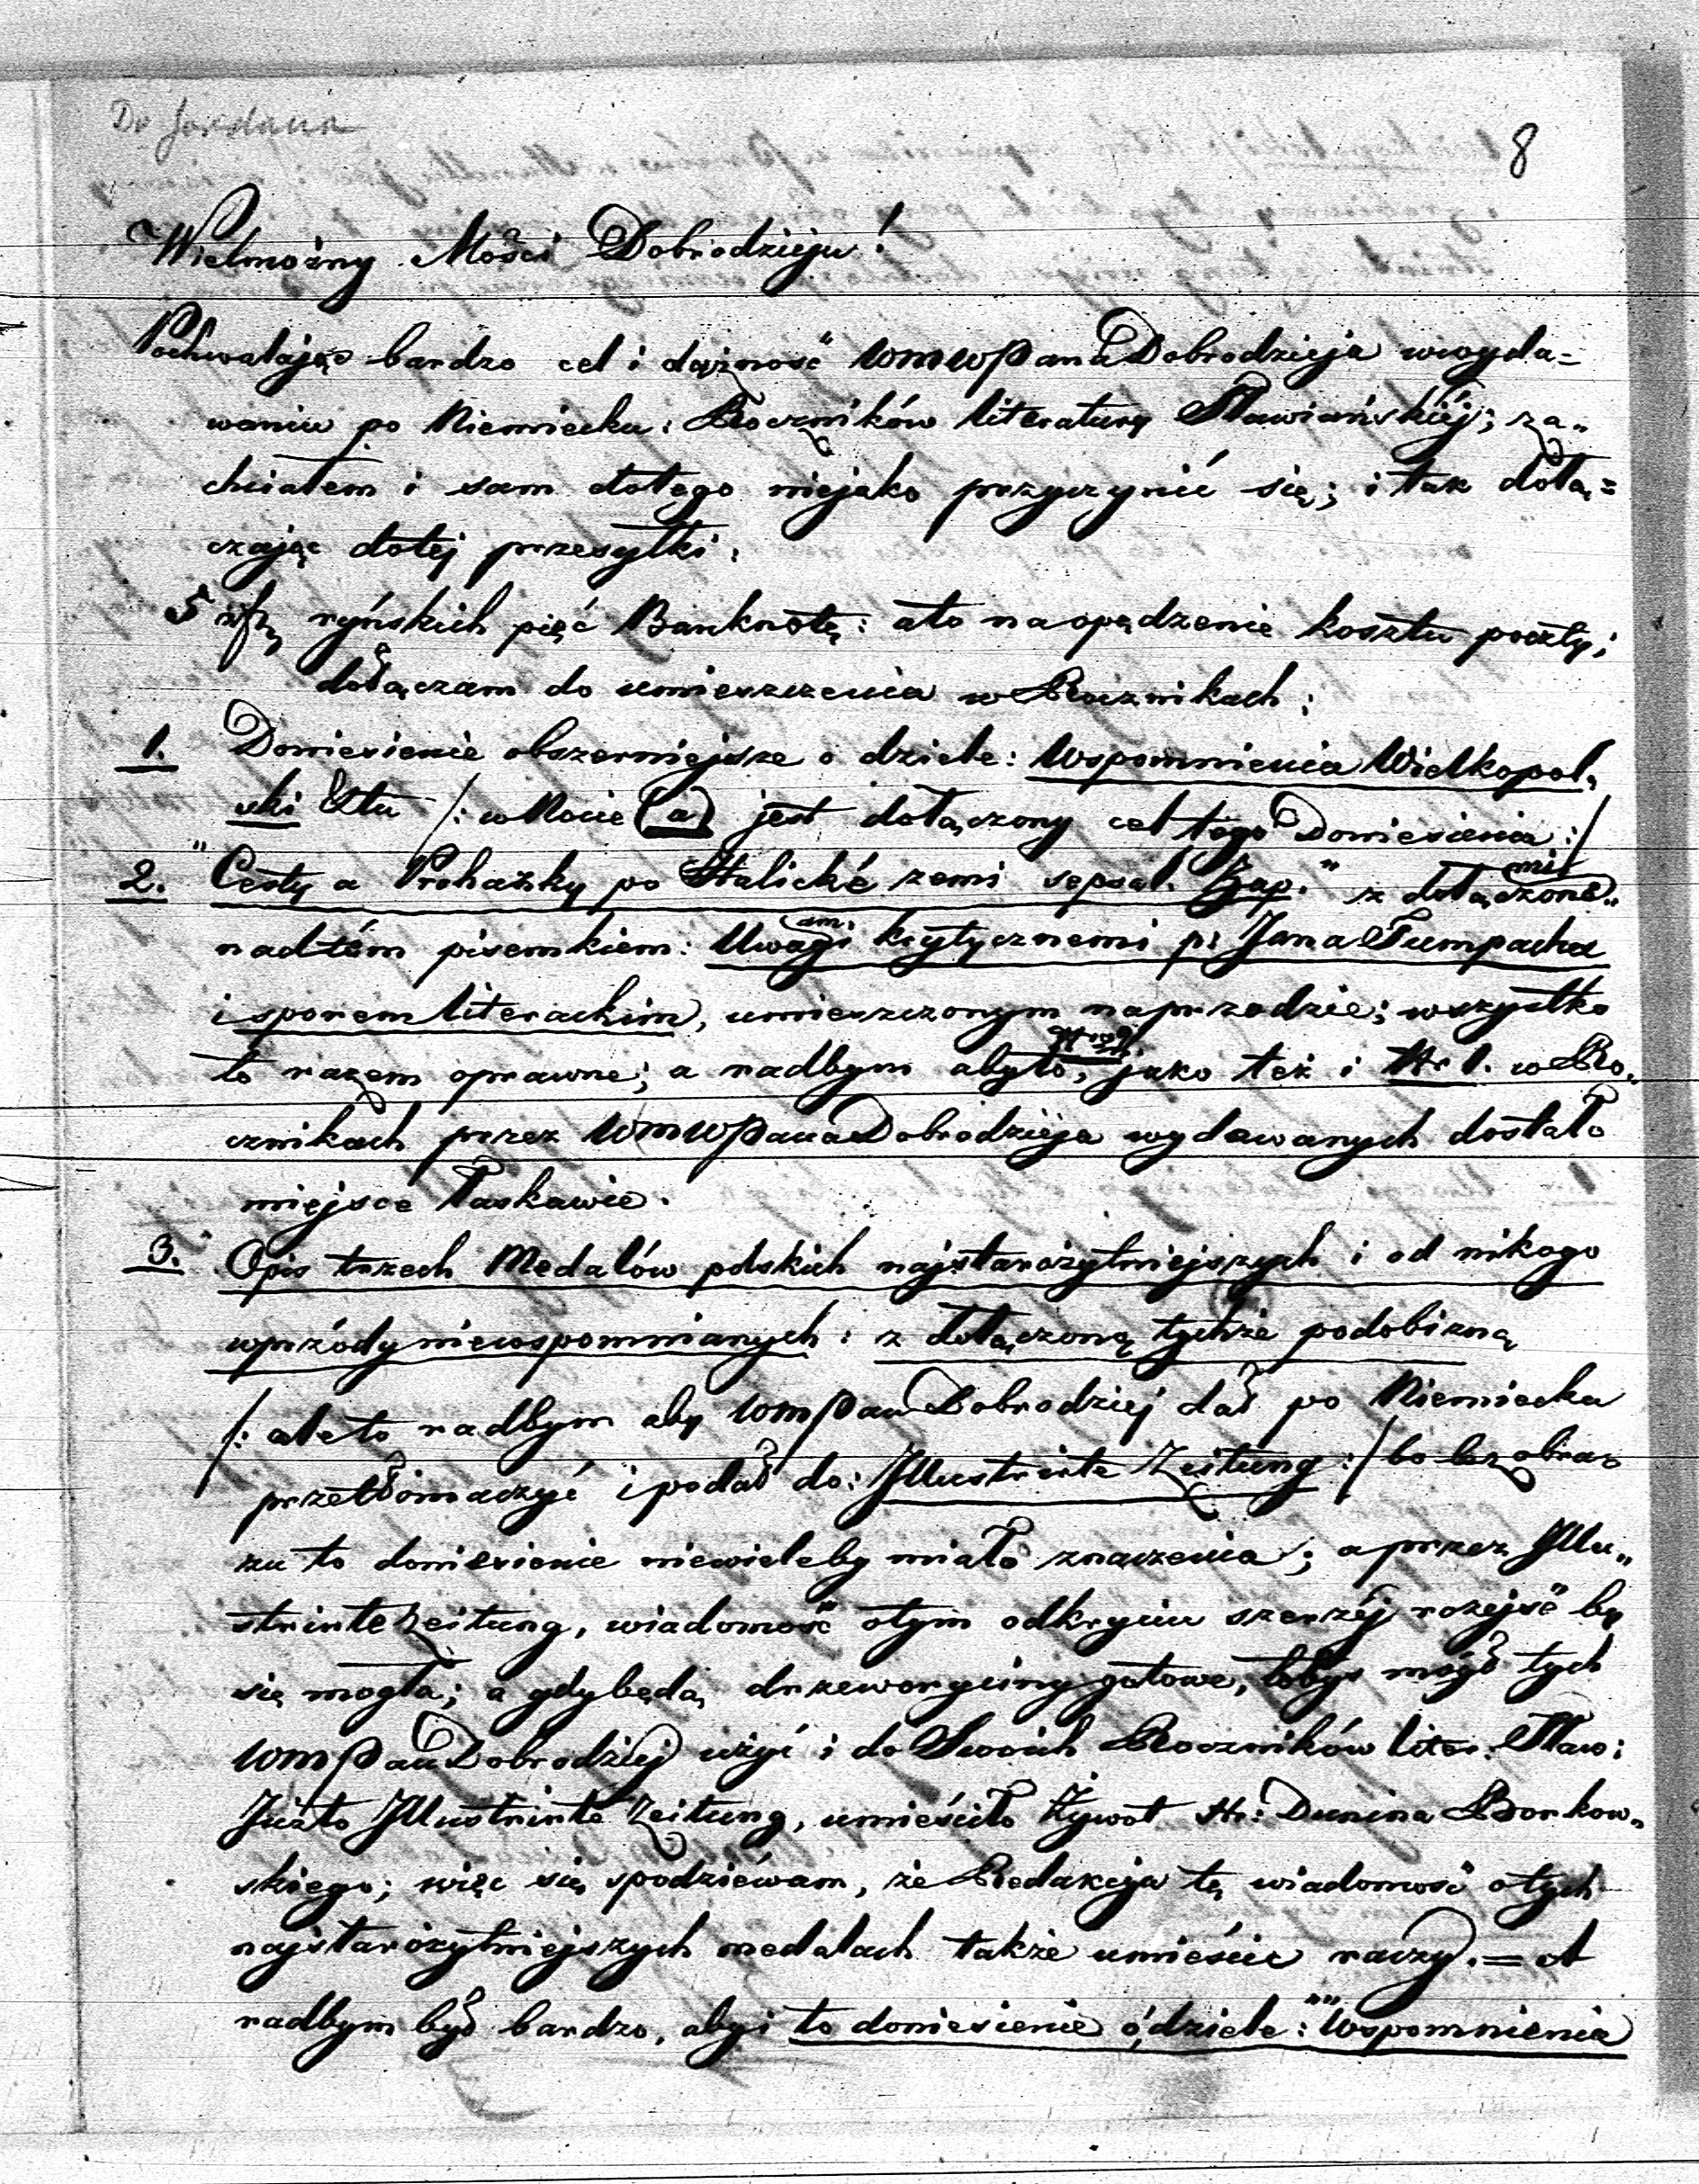 Do Jordana
8
Wielmożny Mości Dobrodzieju!
Pochwalając bardzo cel i dążność WMWPana Dobrodzieja w wyda=
waniu po Niemiecku: Roczników literatury Sławiańskiéj; za„
chciałem i sam dotego niejako przyczynić się; i tak dołą=
czając dotej przesyłki,
5 ryńskich pięć Banknotą: ato na opędzenie kosztu poczty;
dołączam do umieszczenia w Rocznikach;
1. Doniesienie obszerniejsze o dziele: Wspomnienia Wielkopol„
ski /: w Nocie (a) jest dołączony cel tego Doniesienia :/
2. "Cesty a Prohazky po Halické zemi sepsal. Zap." z dołączone„
mi
nadtém pisemkiem: Uwagi krytycznemi p: Jana Tumpacha
am:
i sporem literackim, umieszczonym naprzodzie; wszystko
to razem oprawne; a radbym abyto, jako też i Nr 1. w Ro„
cznikach przez WMWPana Dobrodzieja wydawanych dostało
miejsce Łaskawie.
3. Opis trzech Medalów polskich najstarożytniejszych i od nikogo
wprzódy niewspomnianych: z dołączoną tychże podobizną
/: ale to radbym aby WMPan Dobrodziej dał po Niemiecku
przetłomaczyć i podał do: Illustrirte Zeitung :/ bo bez obra=
zu to doniesienie niewieleby miało znaczenia; aprzez Illu„
strirte Zeitung, wiadomość otym odkryciu szerzéj rozejść by
się mogła; a gdybędą drzeworyciny gotowe, tobyś mógł tych
WMPan Dobrodziej użyć i do Swoich Roczników liter: Sław:
Jużto Illustrirte Zeitung, umieściło Żywot Hr: Dunina Borkow„
skiego; więc się spodziéwam, że Redakcja tę wiadomość otych
najstarożytniejszych medalach także umieścić raczy. = A
radbym był bardzo, abyi to doniesienie o, dziele: "Wspomnienia